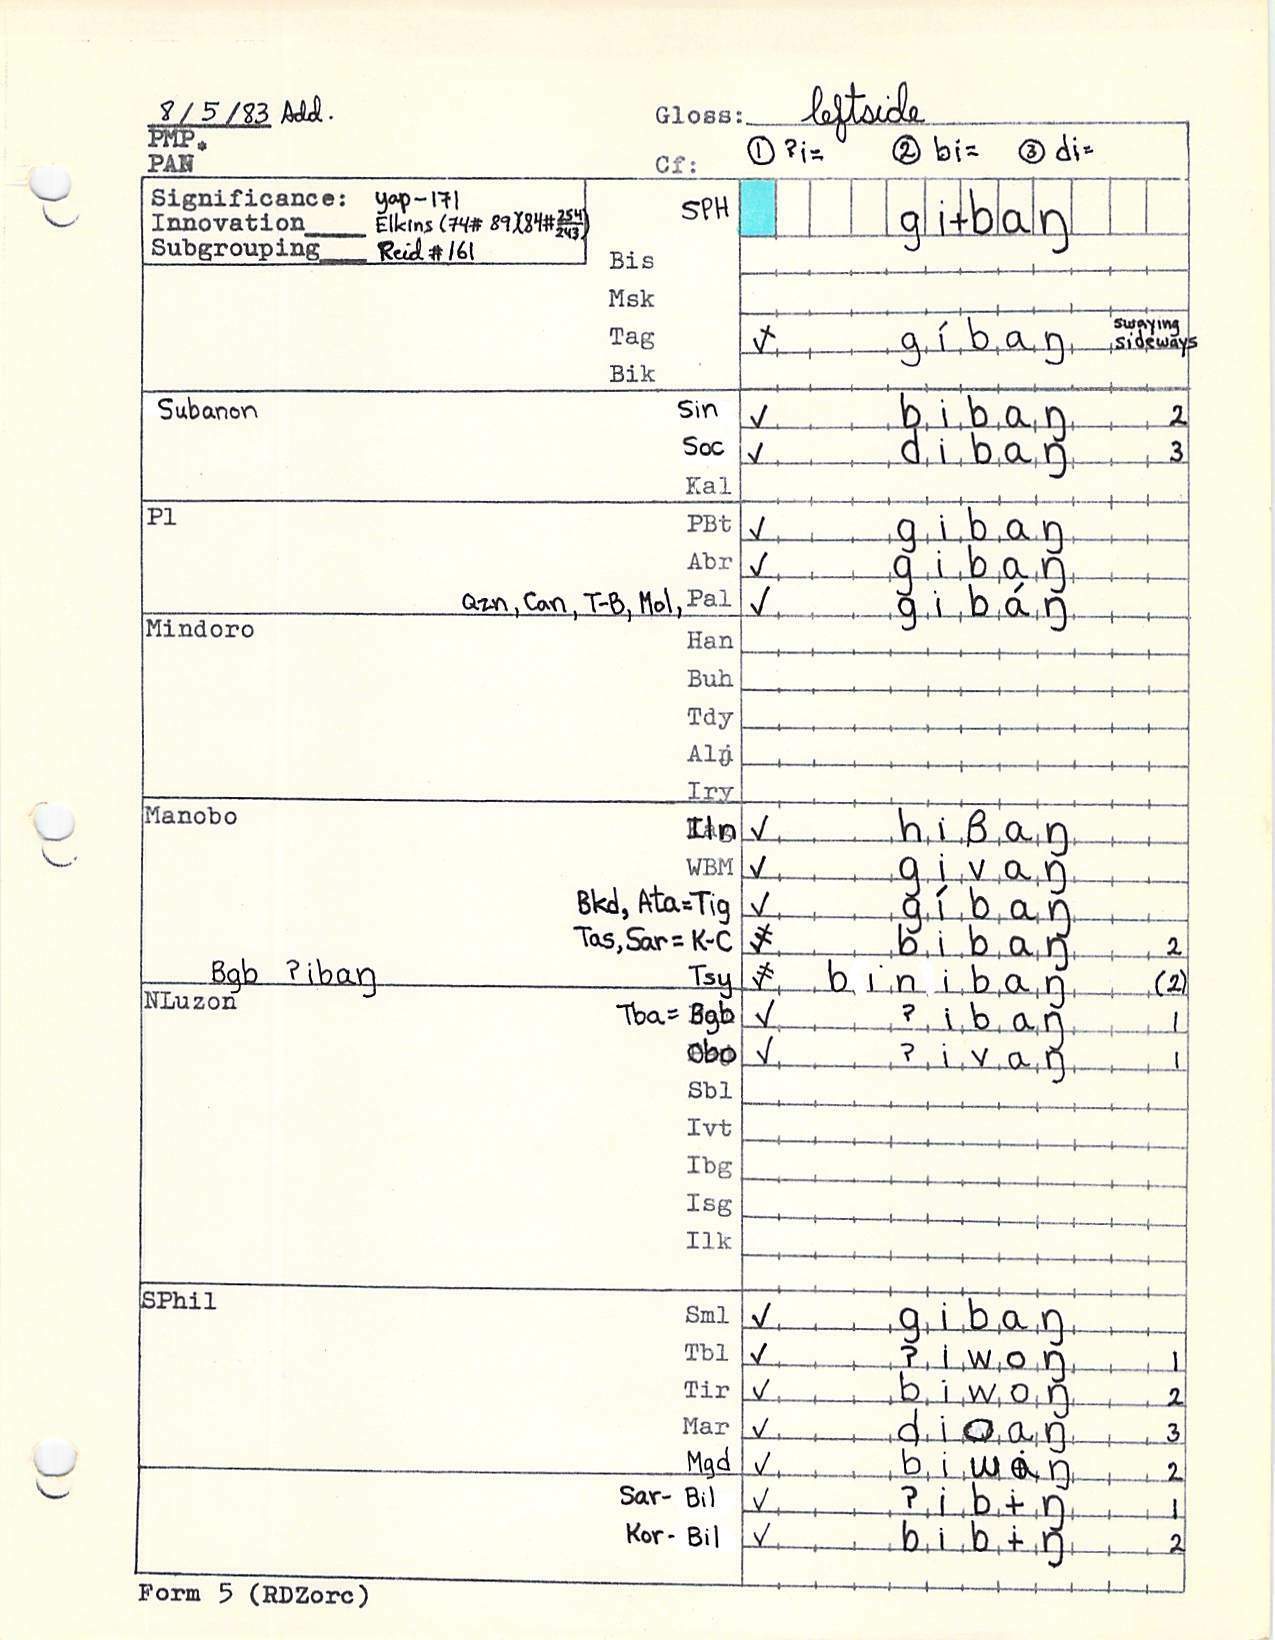 8/5/83 Add. Gloss: leftside
PMP.
PAN Cf: ① ?i= ② bi= ③ di=
Significance: yap-171 SPH gi+baŋ
Innovation____ Elkins (74# 89)(84# 254/243)
Subgrouping____ Reid #161
Bis
Msk
Tag ✓ gíbaŋ swaying sideways
Bik
Subanon Sin ✓ bibaŋ 2
Soc ✓ dibaŋ 3
Kal
Pl PBt ✓ gibaŋ
Abr ✓ gibaŋ
Qzn, Can, T-B, Mol, Pal ✓ gibáŋ
Mindoro
Han
Buh
Tdy
Alj
Iry
Manobo Iln ✓ hiβaŋ
WBM ✓ givaŋ
Bkd, Ata=Tig ✓ gíbaŋ
Tas, Sar = K-C bibaŋ 2
Bgb ?ibaŋ Tsy binibaŋ (2)
NLuzon Tba = Bgb ✓ ?ibaŋ 1
Obo ✓ ?ivaŋ 1
Sbl
Ivt
Ibg
Isg
Ilk
SPhil
Sml ✓ gibaŋ
Tbl ✓ ?iwoŋ 1
Tir ✓ biwoŋ 2
Mar ✓ dioaŋ 3
Mgd ✓ biwaŋ 2
Sar- Bil ✓ ?ibɨŋ 1
Kor- Bil ✓ bibɨŋ 2
Form 5 (RDZorc)